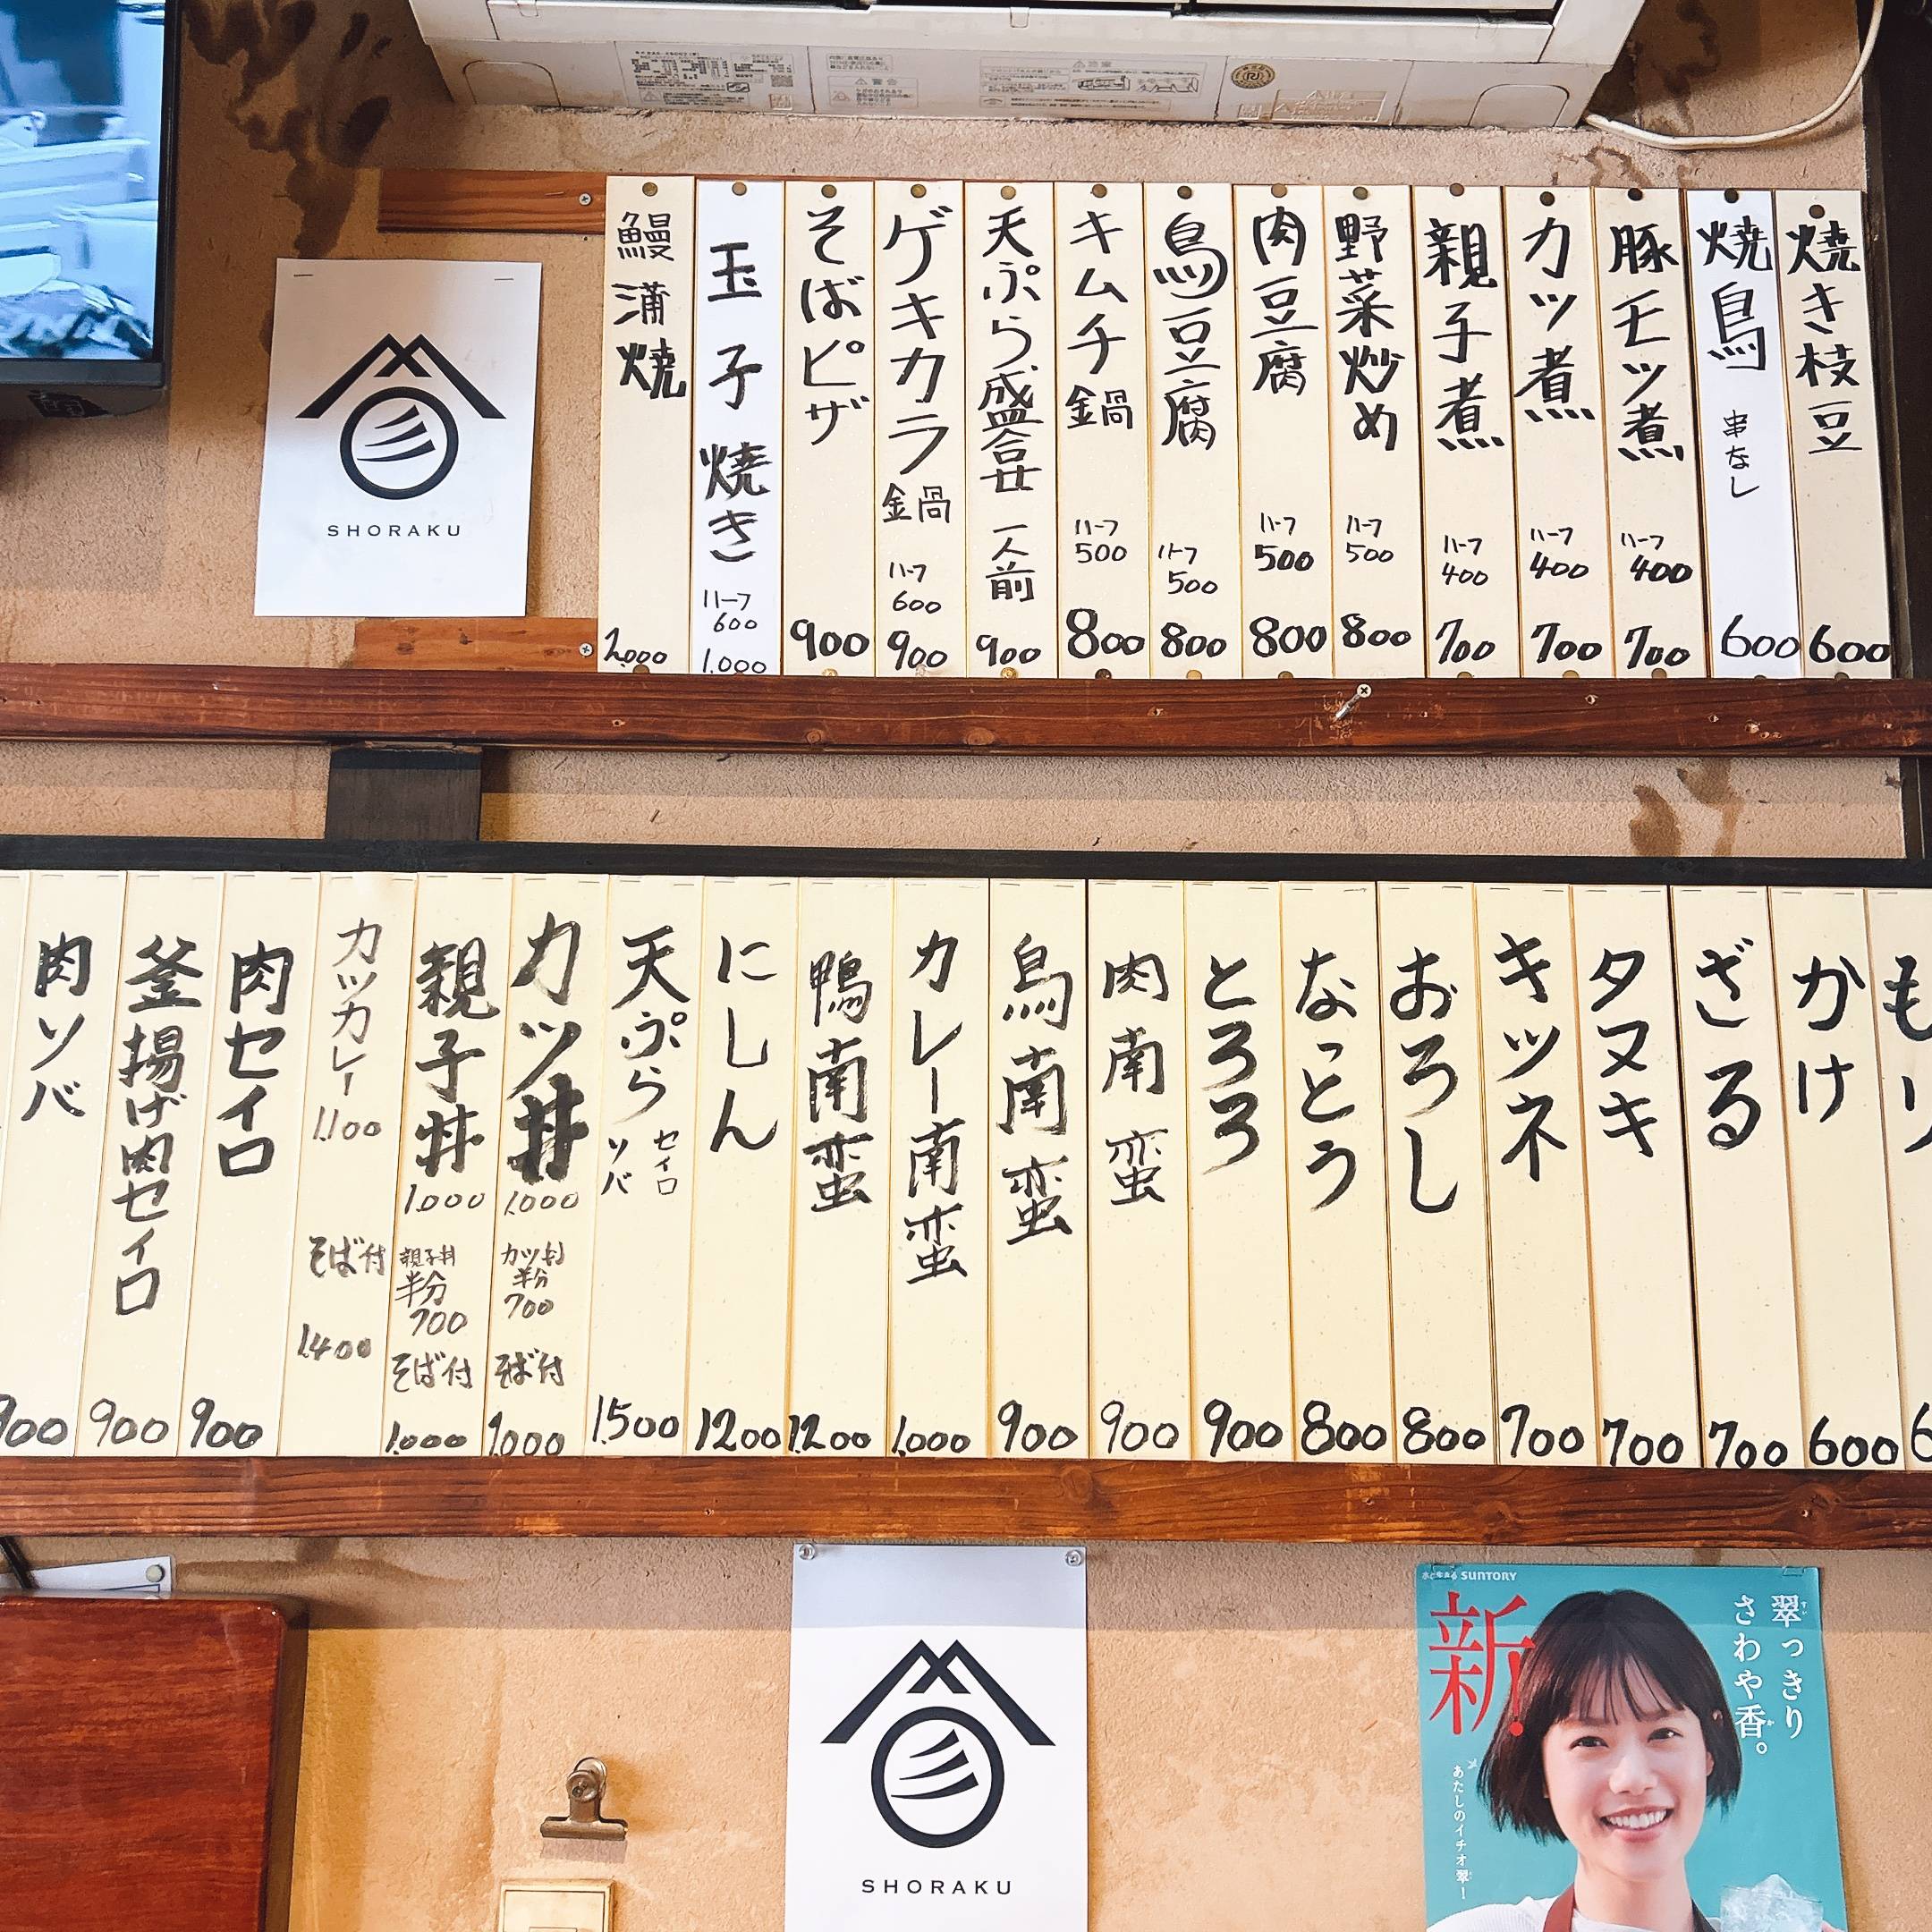 焼き枝豆
600
焼鳥 串なし
600
豚モツ煮
ハーフ
400
700
カツ煮
ハーフ
400
700
親子煮
ハーフ
400
700
野菜炒め
ハーフ
500
800
肉豆腐
ハーフ
500
800
鳥豆腐
ハーフ
500
800
キムチ鍋
ハーフ
500
800
天ぷら盛合せ 一人前
900
ゲキカラ鍋
ハーフ
600
900
そばピザ
900
玉子焼き
ハーフ
600
1.000
鰻蒲焼
2.000
SHORAKU
かけ
600
ざる
700
タヌキ
700
キツネ
700
おろし
800
なっとう
800
とろろ
900
肉南蛮
900
鳥南蛮
900
カレー南蛮
1.000
鴨南蛮
1200
にしん
1200
天ぷら
セイロ
ソバ
1.500
カツ丼
1.000
カツ丼
半分
700
そば付
1.000
親子丼
1.000
親子丼
半分
700
そば付
1.000
カツカレー
1.100
そば付
1.400
肉セイロ
900
釜揚げ肉セイロ
900
肉ソバ
900
SHORAKU
水と生きる SUNTORY
新!
翠っきり
さわや香。
あたしのイチオ翠!